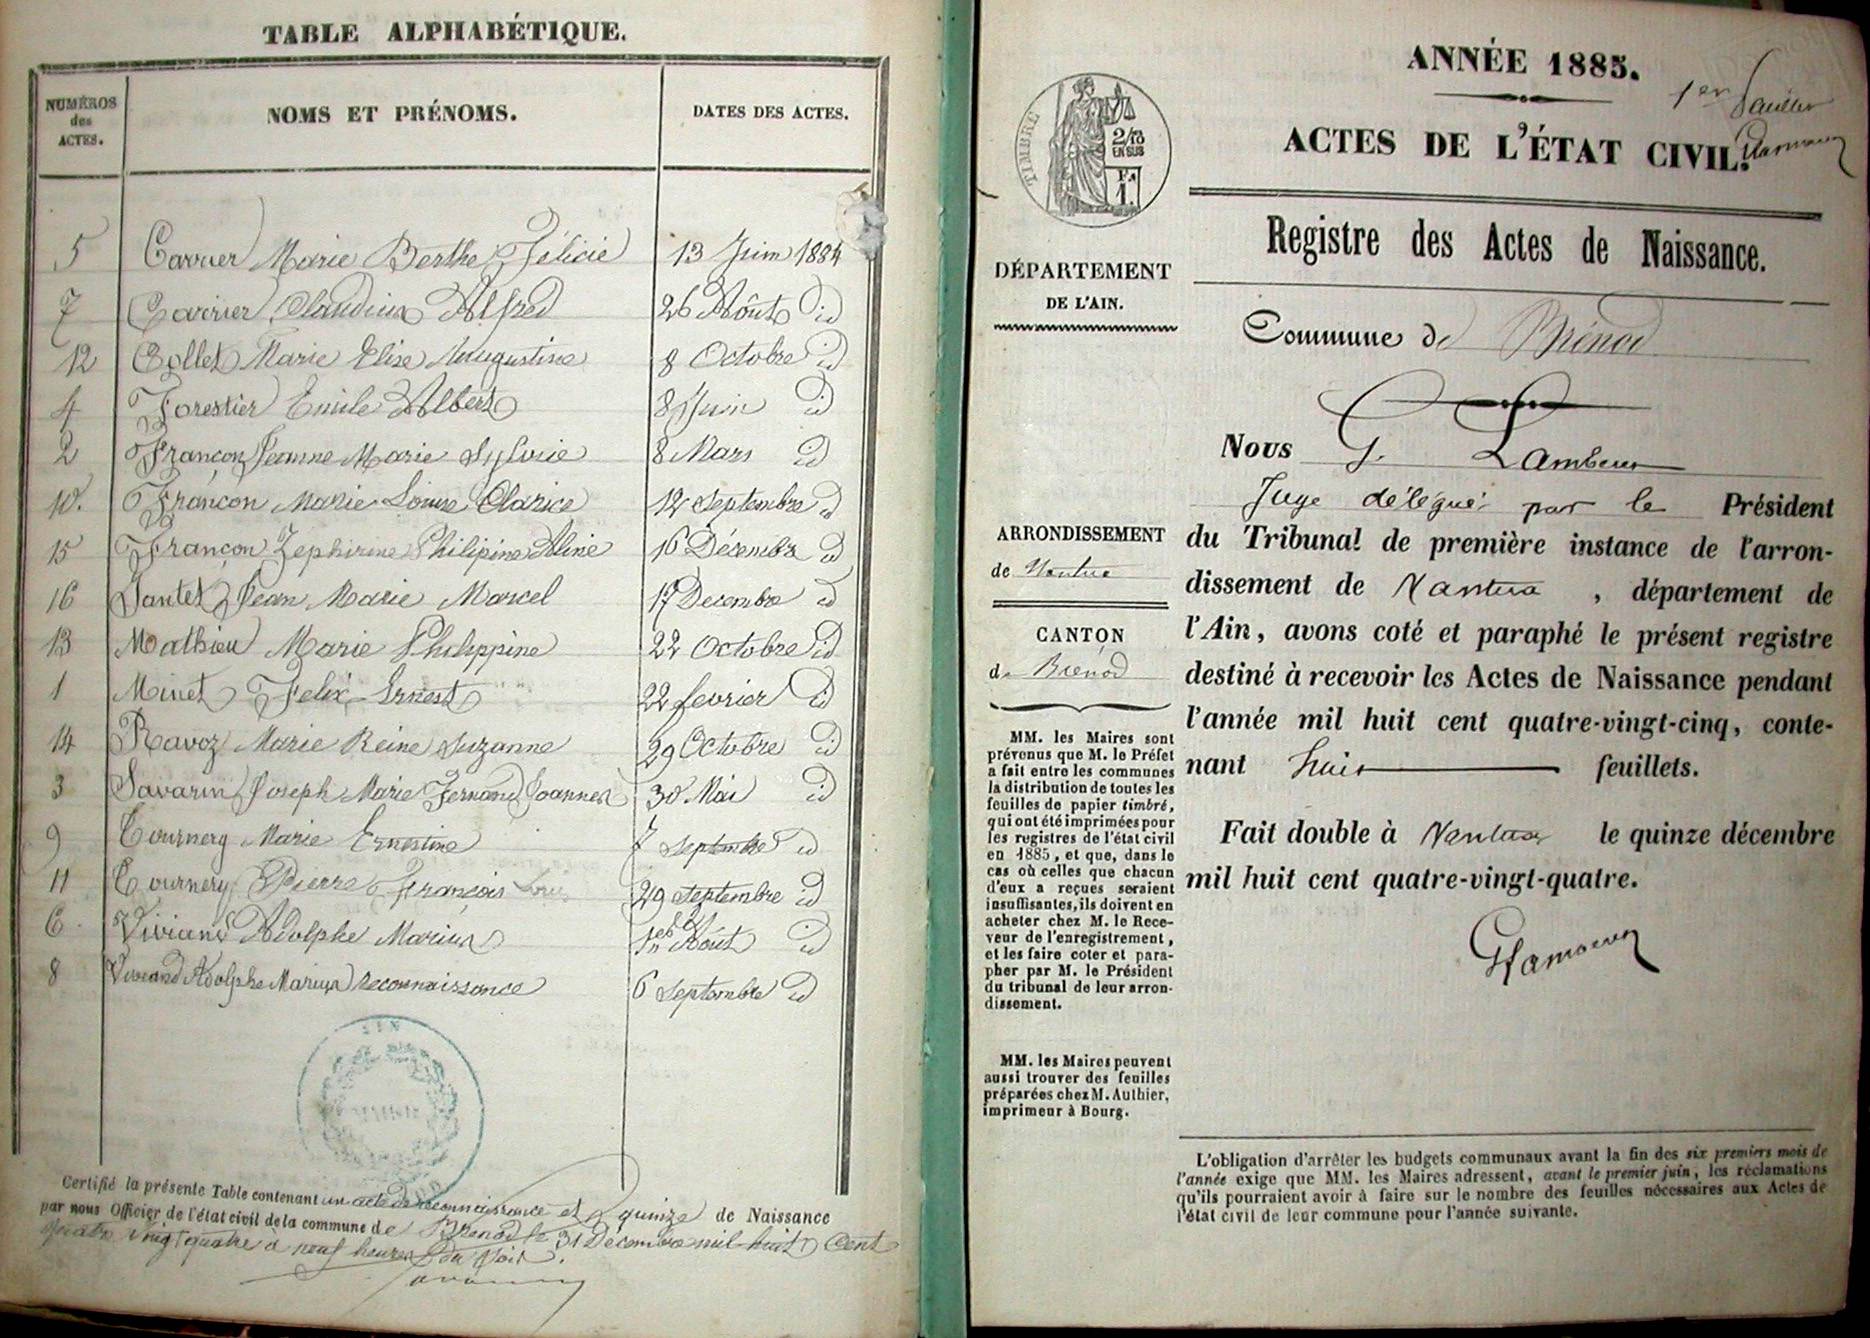 TABLE ALPHABÉTIQUE.
NUMÉROS
des
ACTES.
NOMS ET PRÉNOMS.
DATES DES ACTES.
5 Carrier Marie Berthe Félicie 13 Juin 1884
7 Carrier Claudius Alfred 26 Août id
12 Collet Marie Elise Augustine 8 Octobre id
4 Forestier Emile Albert 8 Juin id
2 Françon Jeanne Marie Sylvie 8 Mars id
10. Françon Marie Louise Clarice 12 Septembre id
15 Françon Zephirine Philipine Aline 16 Décembre id
16 Jantet Jean Marie Marcel 17 Decembre id
13 Mathieu Marie Philippine 22 Octobre id
1 Minet Felix Ernest 22 fevrier id
14 Ravoz Marie Reine Suzanne 29 Octobre id
3 Savarin Joseph Marie Fernand Joannes 30 Mai id
9 Tournery Marie Ernestine 7 Septembre id
11 Tournery Pierre François Louis 29 Septembre id
6 Viviand Adolphe Marius Août id
8 Viviand Adolphe Marius reconnaissance 6 Septembre id
AIN
MAIRIE
Certifié la présente Table contenant un acte de reconnaissance et quinze de Naissance
par nous Officier de l'état civil de la commune de Brenod le 31 Décembre mil huit Cent
quatre vingt quatre a neuf heures du Soir.
Savarin
ANNÉE 1885.
1er feuillet
ACTES DE L'ÉTAT CIVIL.
TIMBRE
2/10
EN SUS
Fs
1.
Registre des Actes de Naissance.
DÉPARTEMENT
DE L'AIN.
Commune de Brénod
Nous G. Lambeur
Juge délégué par le Président
du Tribunal de première instance de l'arron-
dissement de Nantua, département de
l'Ain, avons coté et paraphé le présent registre
destiné à recevoir les Actes de Naissance pendant
l'année mil huit cent quatre-vingt-cinq, conte-
nant huit feuillets.
Fait double à Nantua le quinze décembre
mil huit cent quatre-vingt-quatre.
ARRONDISSEMENT
de Nantua
CANTON
de Brénod
MM. les Maires sont
prévenus que M. le Préfet
a fait entre les communes
la distribution de toutes les
feuilles de papier timbré,
qui ont été imprimées pour
les registres de l'état civil
en 1885, et que, dans le
cas où celles que chacun
d'eux a reçues seraient
insuffisantes, ils doivent en
acheter chez M. le Rece-
veur de l'enregistrement,
et les faire coter et para-
pher par M. le Président
du tribunal de leur arron-
dissement.
MM. les Maires peuvent
aussi trouver des feuilles
préparées chez M. Authier,
imprimeur à Bourg.
L'obligation d'arrêter les budgets communaux avant la fin des six premiers mois de
l'année exige que MM. les Maires adressent, avant le premier juin, les réclamations
qu'ils pourraient avoir à faire sur le nombre des feuilles nécessaires aux Actes de
l'état civil de leur commune pour l'année suivante.